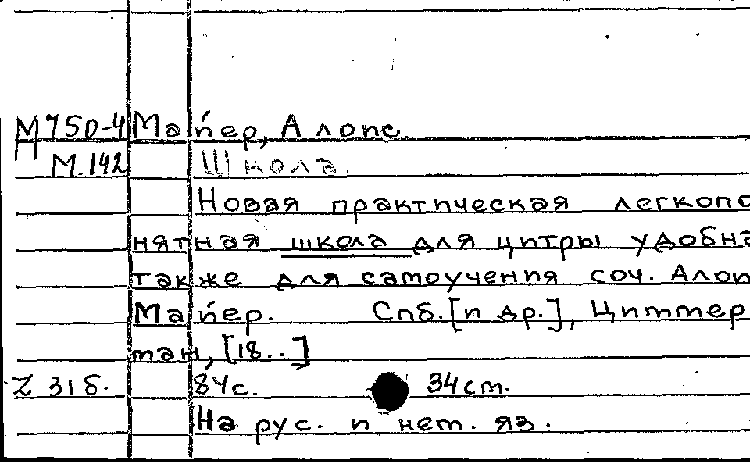 М 750-4 Майер, Алоис
М.142 Школа.
Новая практическая легкопо
нятная школа для цитры удобна
также для самоучения соч. Алои
Майер. Спб. [и др.], Циммер
ман, [18..]
Z 31б. 84с. 34см.
На рус. и нем. яз.